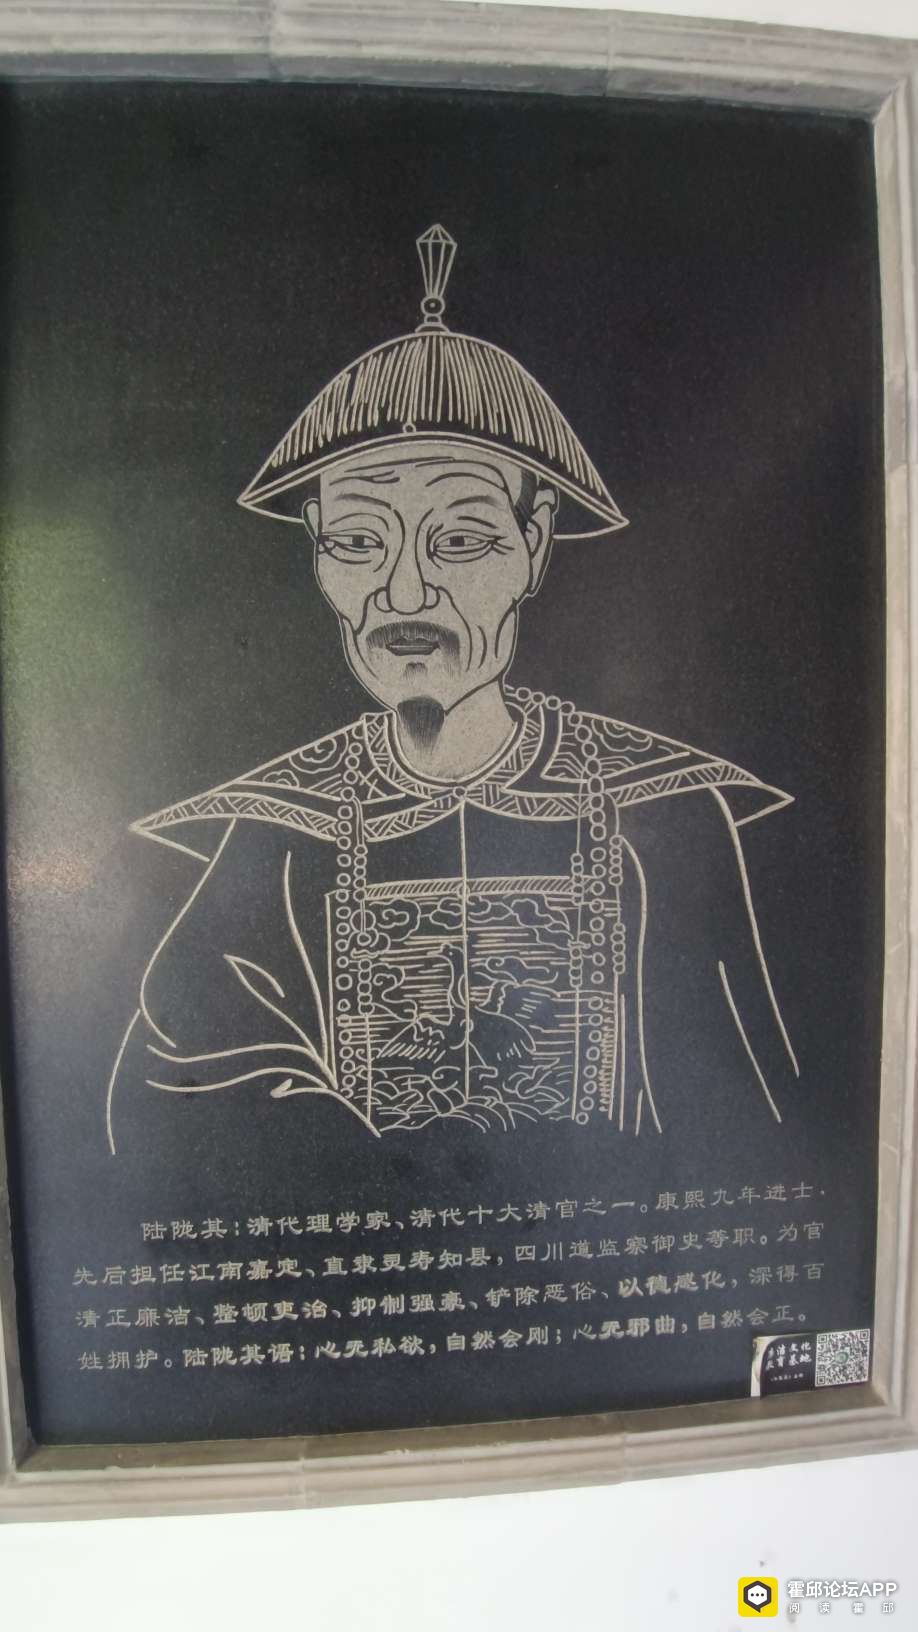 陆陇其：清代理学家、清代十大清官之一。康熙九年进士，
先后担任江南嘉定、直隶灵寿知县，四川道监察御史等职。为官
清正廉洁、整顿吏治、抑制强豪、铲除恶俗、以德感化，深得百
姓拥护。陆陇其语：心无私欲，自然会刚；心无邪曲，自然会正。
洁文化
教育基地
霍邱论坛APP
阅读霍邱